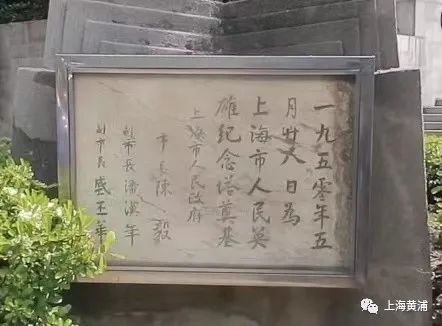 一九五零年五
月廿八日為
上海市人民英
雄紀念塔奠基
上海市人民政府
市長陳毅
副市長潘漢年
副市長盛丕華
上海黄浦